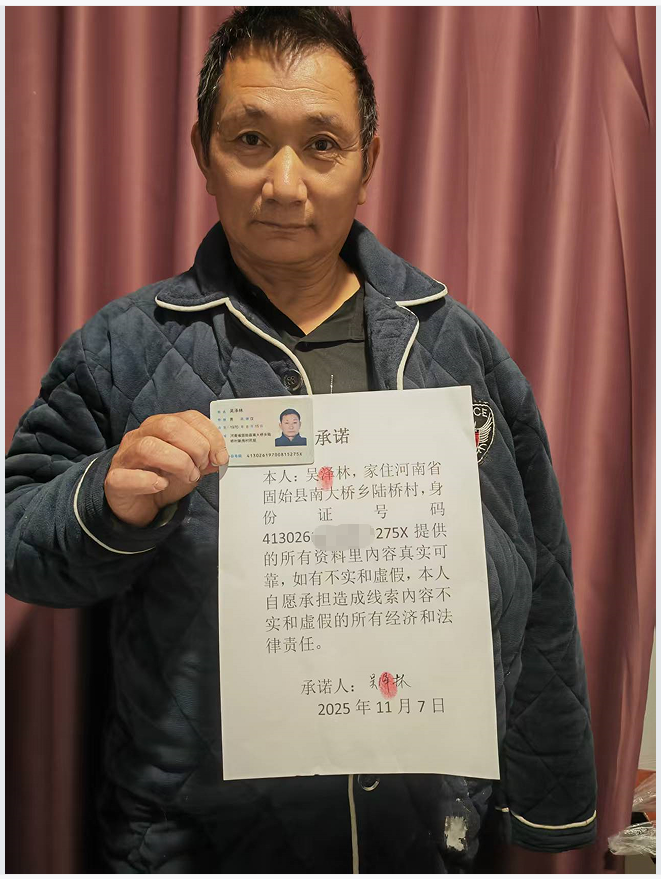 承诺
本人：吴泽林，家住河南省
固始县南大桥乡陆桥村，身
份证号码
413026 275X 提供
的所有资料里内容真实可
靠，如有不实和虚假，本人
自愿承担造成线索内容不
实和虚假的所有经济和法
律责任。
承诺人：吴泽林
2025 年 11 月 7 日